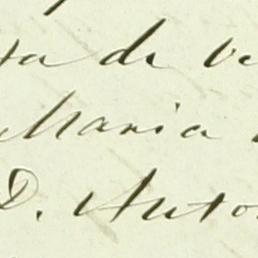 de
Maria
D. Anto